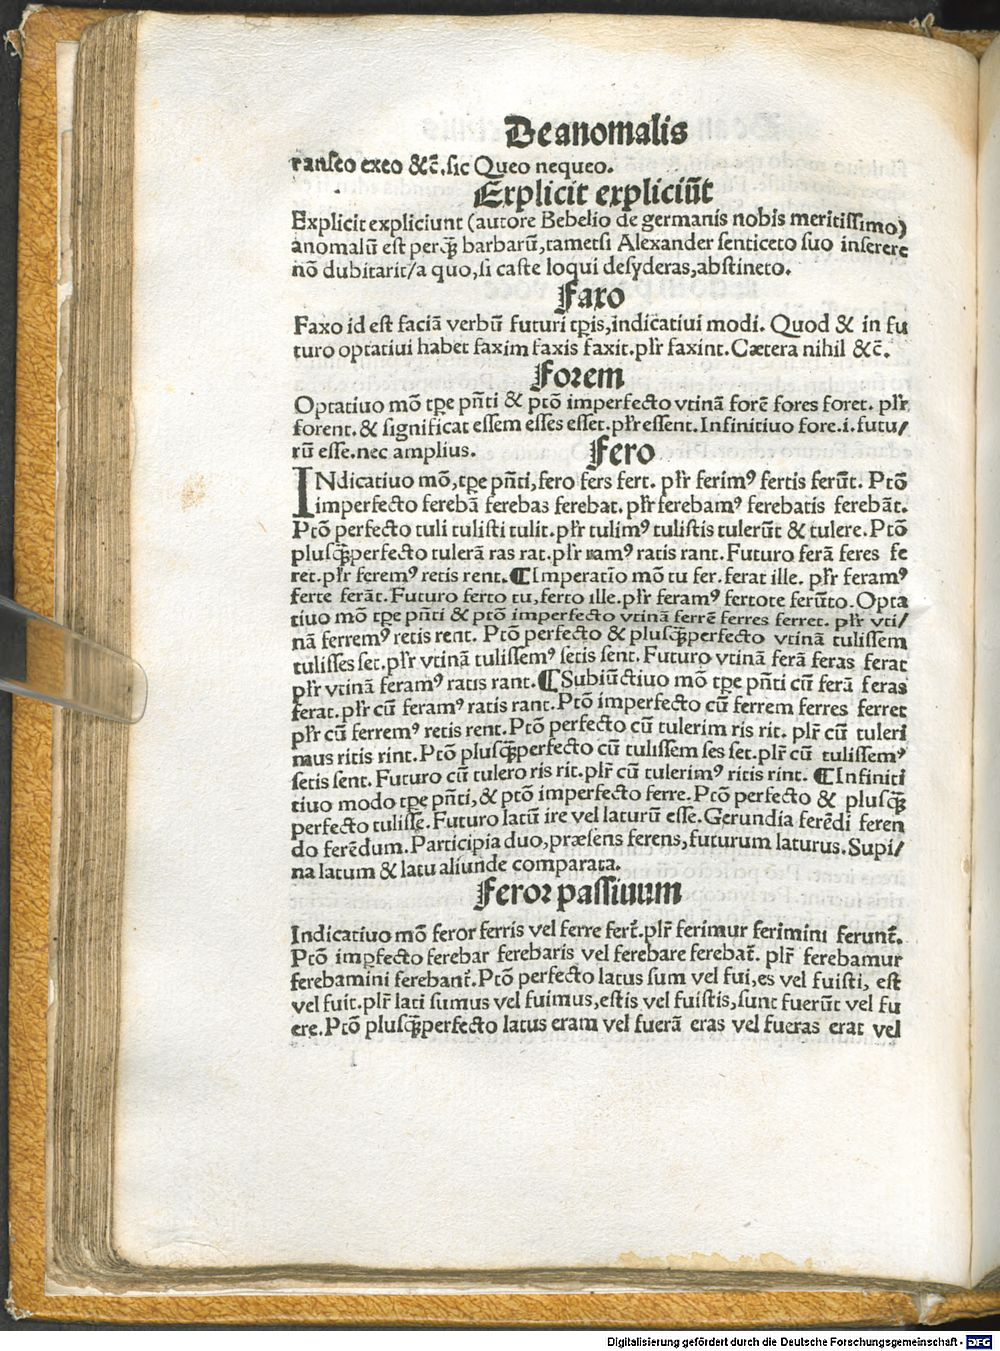 De anomalis
ranseo exeo &c̄. sic Queo nequeo.
Explicit expliciūt
Explicit expliciunt (autore Bebelio de germanis nobis meritissimo)
anomalū est perq̄ barbarū, tametsi Alexander senticeto suo inserere
nō dubitarit/a quo, si caste loqui desyderas, abstineto.
Faxo
Faxo id est faciā verbū futuri tp̄is, indicatiui modi. Quod & in fu
turo optatiui habet faxim faxis faxit. plr̄ faxint. Cætera nihil &c̄.
Forem
Optatiuo mō tp̄e pn̄ti & ptō imperfecto vtinā forē fores foret. plr̄
forent. & significat essem esses esset. plr̄ essent. Infinitiuo fore .i. futu/
rū esse. nec amplius.
Fero
INdicatiuo mō, tp̄e pn̄ti, fero fers fert. plr̄ ferimꝰ fertis ferūt. Ptō
imperfecto ferebā ferebas ferebat. plr̄ ferebamꝰ ferebatis ferebāt.
Ptō perfecto tuli tulisti tulit. plr̄ tulimꝰ tulistis tulerūt & tulere. Ptō
plusq̄perfecto tulerā ras rat. plr̄ ramꝰ ratis rant. Futuro ferā feres fe
ret. plr̄ feremꝰ retis rent. ¶Imperatīo mō tu fer. ferat ille. plr̄ feramꝰ
ferte ferāt. Futuro ferto tu, ferto ille. plr̄ feramꝰ fertote ferūto. Opta
tiuo mō tp̄e pn̄ti & ptō imperfecto vtinā ferrē ferres ferret. plr̄ vti/
nā ferremꝰ retis rent. Ptō perfecto & plusq̄perfecto vtinā tulissem
tulisses set. plr̄ vtinā tulissemꝰ setis sent. Futuro vtinā ferā feras ferat
plr̄ vtinā feramꝰ ratis rant. ¶Subiūctiuo mō tp̄e pn̄ti cū ferā feras
ferat. plr̄ cū feramꝰ ratis rant. Ptō imperfecto cū ferrem ferres ferret
plr̄ cū ferremꝰ retis rent. Ptō perfecto cū tulerim ris rit. plr̄ cū tuleri
mus ritis rint. Ptō plusq̄perfecto cū tulissem ses set. plr̄ cū tulissemꝰ
setis sent. Futuro cū tulero ris rit. plr̄ cū tulerimꝰ ritis rint. ¶Infiniti
tiuo modo tp̄e pn̄ti, & ptō imperfecto ferre. Ptō perfecto & plusq̄
perfecto tulisse. Futuro latū ire vel laturū esse. Gerundia ferēdi feren
do ferēdum. Participia duo, præsens ferens, futurum laturus. Supi/
na latum & latu aliunde comparata.
Feror passiuum
Indicatiuo mō feror ferris vel ferre fert̄. plr̄ ferimur ferimini ferunt̄.
Ptō imp̄fecto ferebar ferebaris vel ferebare ferebat̄. plr̄ ferebamur
ferebamini ferebant̄. Ptō perfecto latus sum vel fui, es vel fuisti, est
vel fuit. plr̄ lati sumus vel fuimus, estis vel fuistis, sunt fuerūt vel fu
ere. Ptō plusq̄perfecto latus eram vel fuerā eras vel fueras erat vel
Digitalisierung gefördert durch die Deutsche Forschungsgemeinschaft - DFG